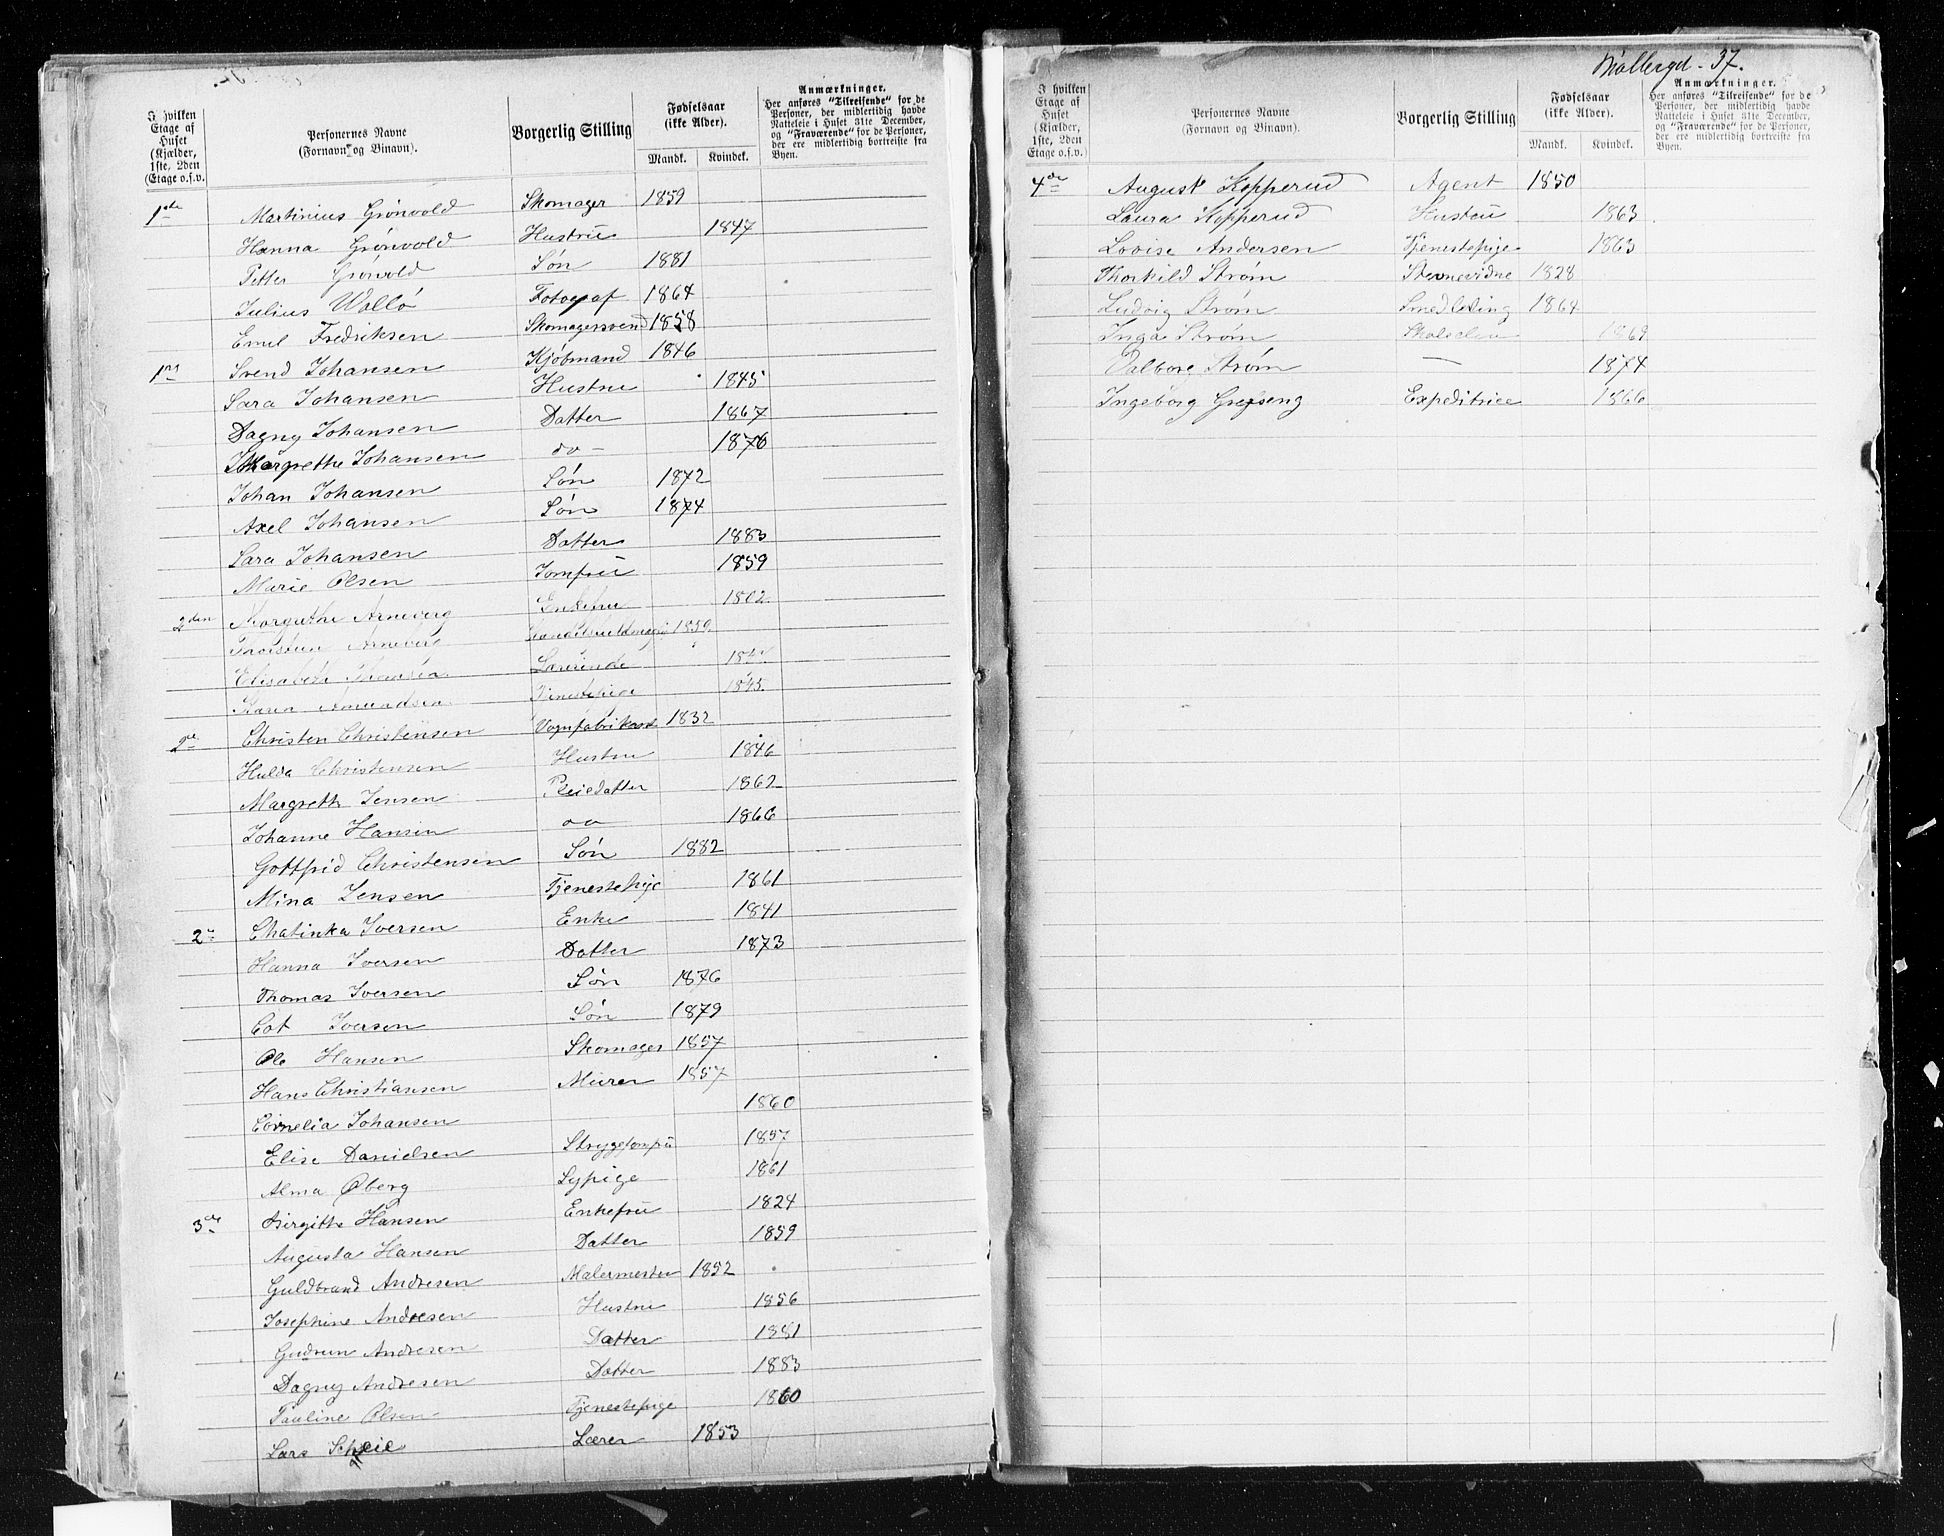 I hvilken Etage af Huset (Kjælder, 1ste, 2den Etage o.s.v.
Personernes Navne (Fornavn og Binavn).
Borgerlig Stilling
Fødselsaar (ikke Alder).
Mandk. Kvindek.
Anmærkninger.
Her anføres "Tilreisende" for de Personer, der midlertidig havde Natteleie i Huset 31te December, og "Fraværende" for de Personer, der ere midlertidig bortreiste fra Byen.
1ste Martinius Grönvold Skomager 1859
Hanna Grönvold Hustru 1847
Petter Grönvold Søn 1881
Julius Wallö Fotograf 1864
Emil Fredriksen Skomagersvend 1858
1ste Svend Johansen Kjöbmand 1846
Sara Johansen Hustru 1845
Dagny Johansen Datter 1867
Margrethe Johansen do - 1870
Johan Johansen Søn 1872
Axel Johansen Søn 1874
Sara Johansen Datter 1883
Marie Olsen Jomfru 1859
2den Margrethe Arneberg Enkefru 1802
Arneberg 1850
Elisabeth Lærerinde
Karen Amundsen Tjenestepige 1845
2de Christen Christensen Vognfabrikant 1832
Hulda Christensen Hustru 1846
Margrethe Jensen Pleiedatter 1862
Johanne Hansen do 1866
Gottfrid Christensen Søn 1882
Mina Jensen Tjenestepige 1861
2den Chatinka Iversen Enke 1841
Hanna Iversen Datter 1873
Thomas Iversen Søn 1876
Iversen Søn 1879
Ole Hansen Skomager 1857
Hans Christiansen Murer 1857
Cornelia Johansen 1860
Elise Danielsen Strygejomfru 1857
Alma Øberg Sypige 1861
3de Birgitte Hansen Enkefru 1824
Augusta Hansen Datter 1859
Guldbrand Andresen Malermester 1852
Josephine Andresen Hustru 1856
Gudrun Andresen Datter 1881
Dagny Andresen Datter 1883
Pauline Olsen Tjenestepige 1860
Lars Scheie Lærer 1853
Møllergd. 37.
I hvilken Etage af Huset (Kjælder, 1ste, 2den Etage o.s.v.
Personernes Navne (Fornavn og Binavn).
Borgerlig Stilling
Fødselsaar (ikke Alder).
Mandk. Kvindek.
Anmærkninger.
Her anføres "Tilreisende" for de Personer, der midlertidig havde Natteleie i Huset 31te December, og "Fraværende" for de Personer, der ere midlertidig bortreiste fra Byen.
4de August Kopperud Agent 1850
Laura Kopperud Hustru 1863
Lovise Andersen Tjenestepige 1863
Thorkild Strøm Stevnevidne 1828
Ludvig Strøm Smedlærling 1864
Inga Strøm Skoleelev 1869
Valborg Strøm — 1874
Ingeborg Grefseng Expeditrice 1866